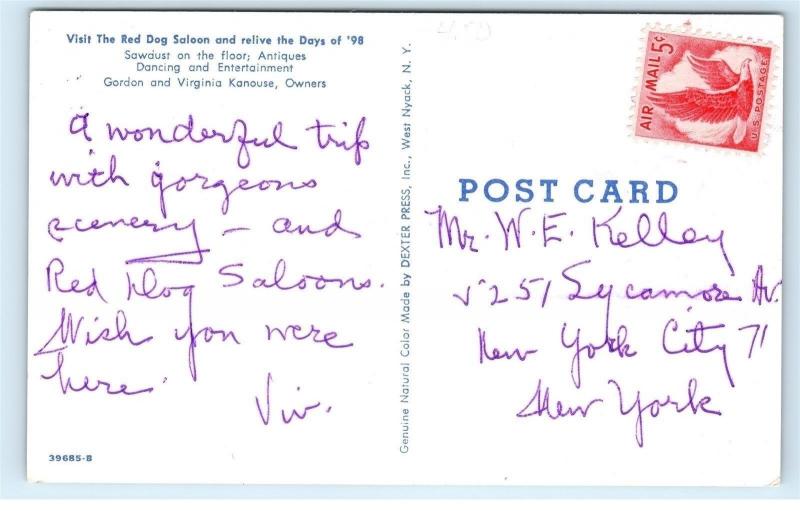 Visit The Red Dog Saloon and relive the Days of '98
Sawdust on the floor; Antiques
Dancing and Entertainment
Gordon and Virginia Kanouse, Owners
A wonderful trip
with gorgeous
scenery – and
Red Dog Saloons.
Wish you were
here.
Viv.
39685-B
Genuine Natural Color Made by DEXTER PRESS, Inc., West Nyack, N. Y.
AIR MAIL 5¢
U.S. POSTAGE
POST CARD
Mr. W. E. Kelley
5251 Sycamore Av.
New York City 71
New York